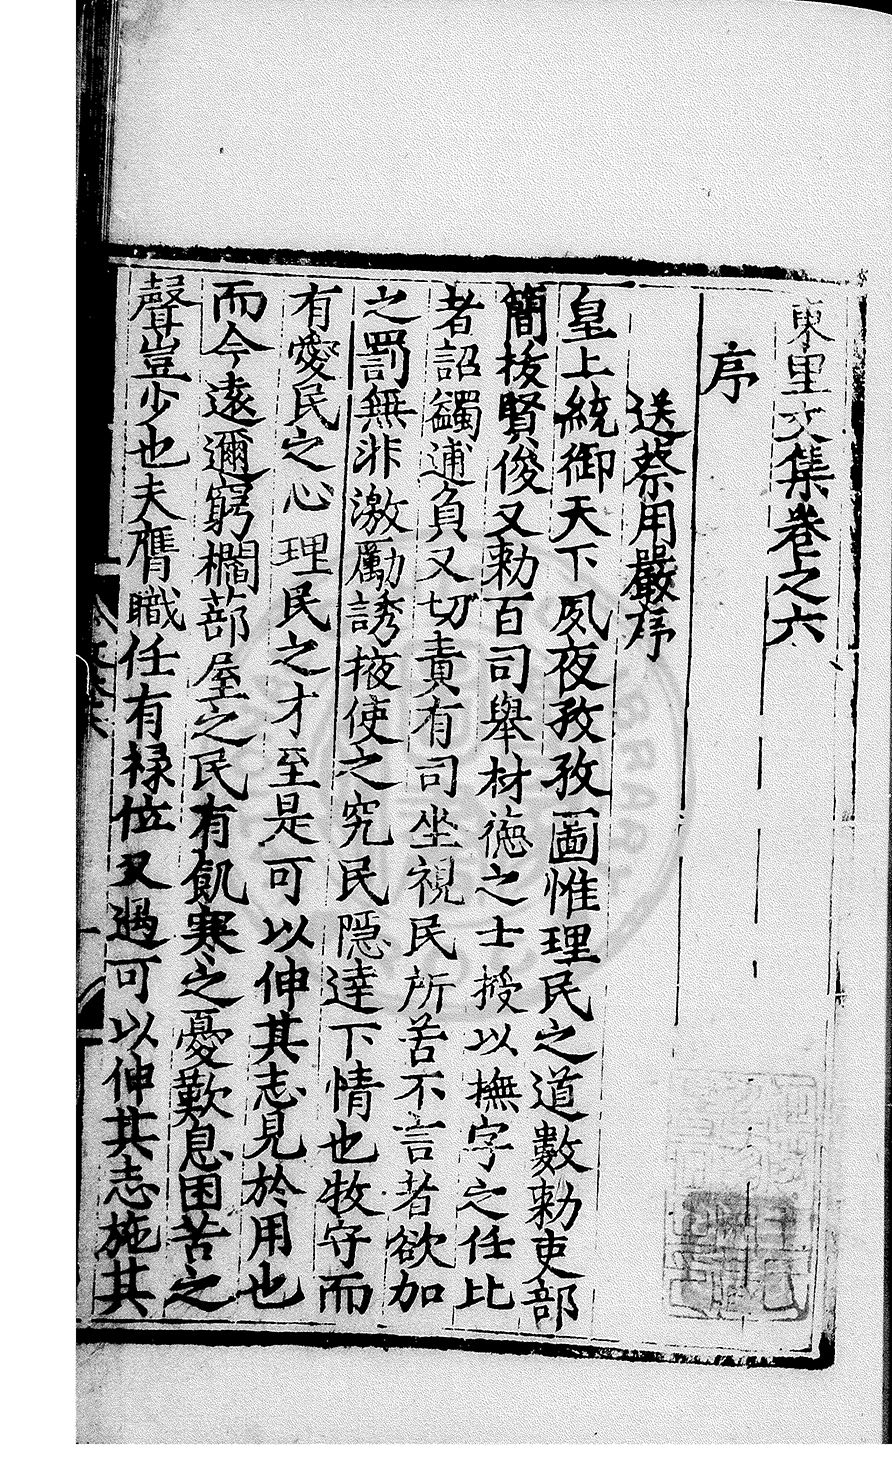 東里文集卷之六
序
送蔡用嚴序
皇上統御天下夙夜孜孜圖惟理民之道數勑吏部
簡拔賢俊又勑百司舉材德之士授以撫字之任比
者詔蠲逋負又切責有司坐視民所苦不言者欲加
之罰無非激勵誘掖使之究民隱達下情也牧守而
有愛民之心理民之才至是可以伸其志見於用也
而今遠邇窮櫩蔀屋之民有飢寒之憂歎息困苦之
聲豈少也夫膺職任有祿位又遇可以伸其志施其